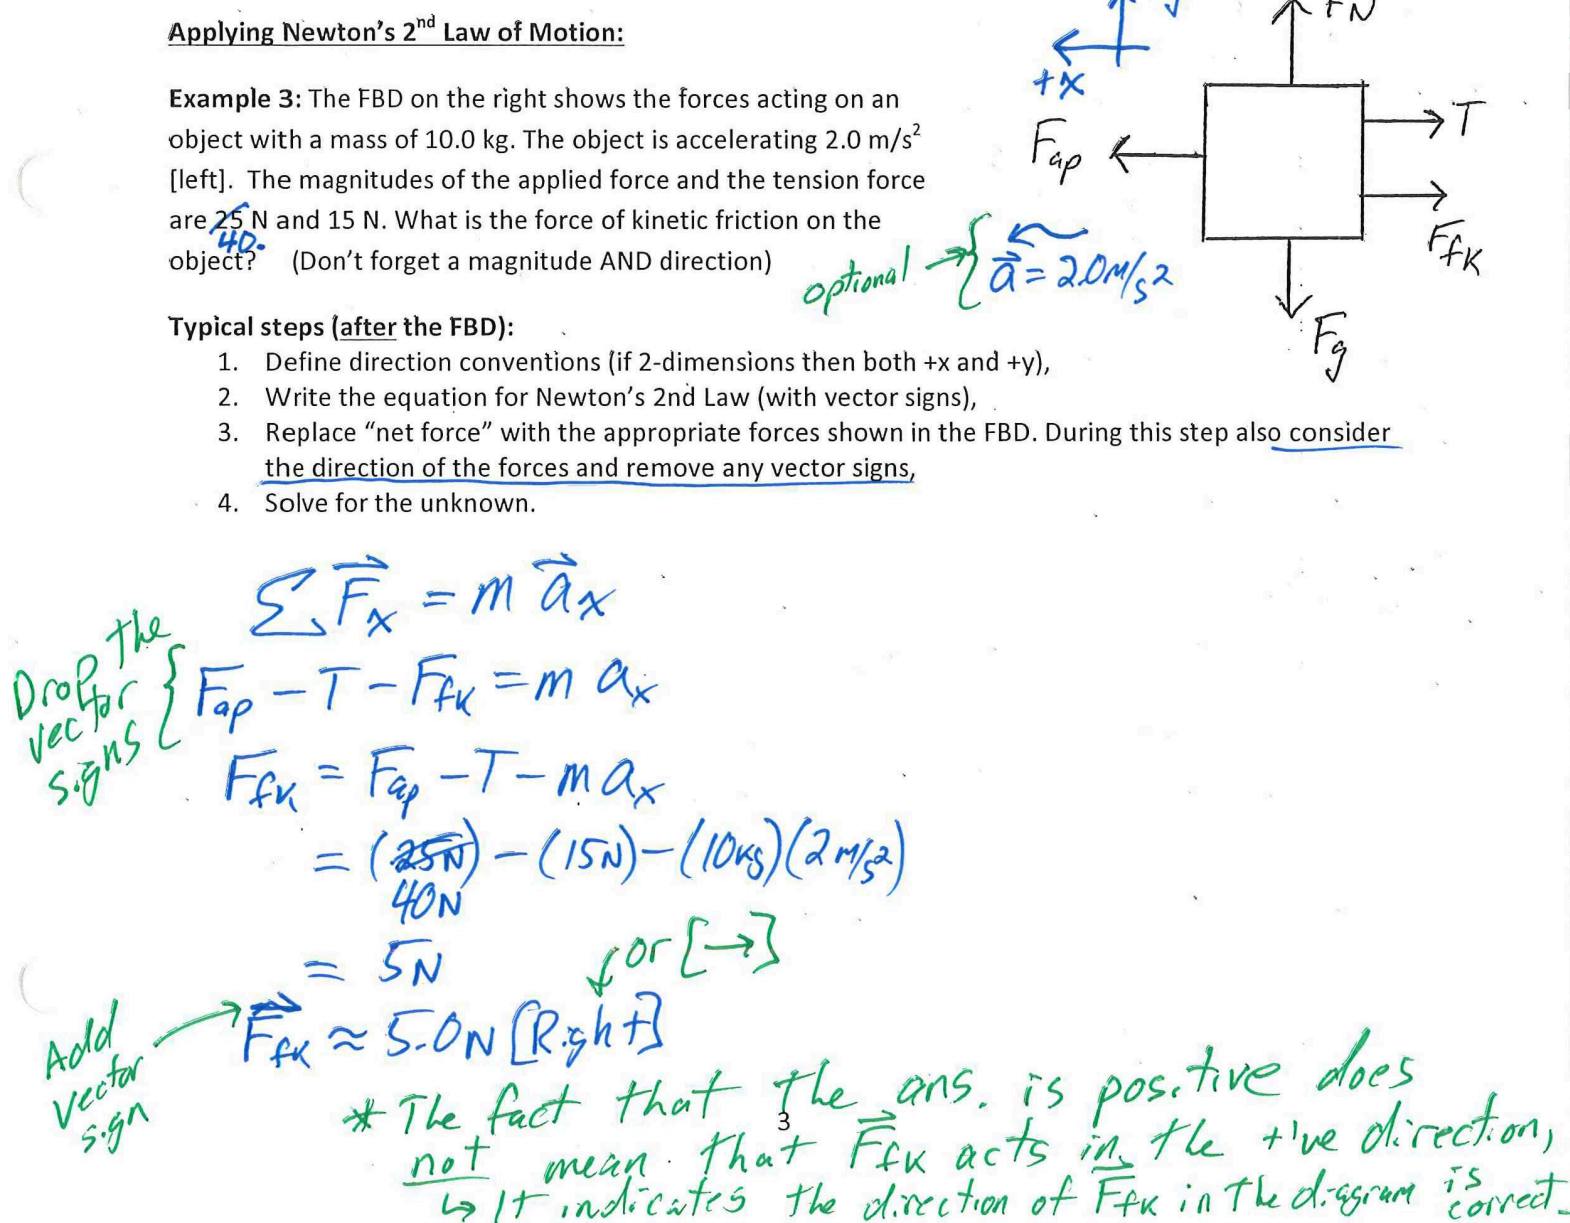 Applying Newton's 2nd Law of Motion:
FN
+x
Example 3: The FBD on the right shows the forces acting on an
object with a mass of 10.0 kg. The object is accelerating 2.0 m/s²
[left]. The magnitudes of the applied force and the tension force
are 25 N and 15 N. What is the force of kinetic friction on the
40.
object? (Don't forget a magnitude AND direction)
Fap
T
FfK
Fg
optional → { a⃗ = 2.0 m/s²
Typical steps (after the FBD):
1. Define direction conventions (if 2-dimensions then both +x and +y),
2. Write the equation for Newton's 2nd Law (with vector signs),
3. Replace "net force" with the appropriate forces shown in the FBD. During this step also consider
the direction of the forces and remove any vector signs,
4. Solve for the unknown.
Σ F⃗x = m a⃗x
Drop the
vector
signs
Fap - T - FfK = m ax
FfK = Fap - T - m ax
= (25N) - (15N) - (10kg)(2 m/s²)
40N
= 5N
or [→]
Add
vector
sign
F⃗fK ≈ 5.0N [Right]
* The fact that the ans. is positive does
3
not mean that F⃗fK acts in the +'ve direction,
↳ It indicates the direction of F⃗fK in the diagram is
correct.